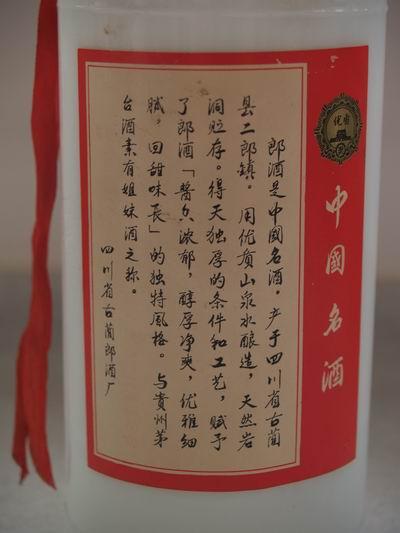 郎酒是中國名酒。产于四川省古藺
县二郎镇。用优质山泉水酿造，天然岩
洞贮存。得天独厚的条件和工艺，赋予
了郎酒「酱香浓郁，醇厚净爽，优雅细
腻，回甜味長」的独特風格。与貴州茅
台酒素有姐妹酒之称。
四川省古藺郎酒厂
中國名酒